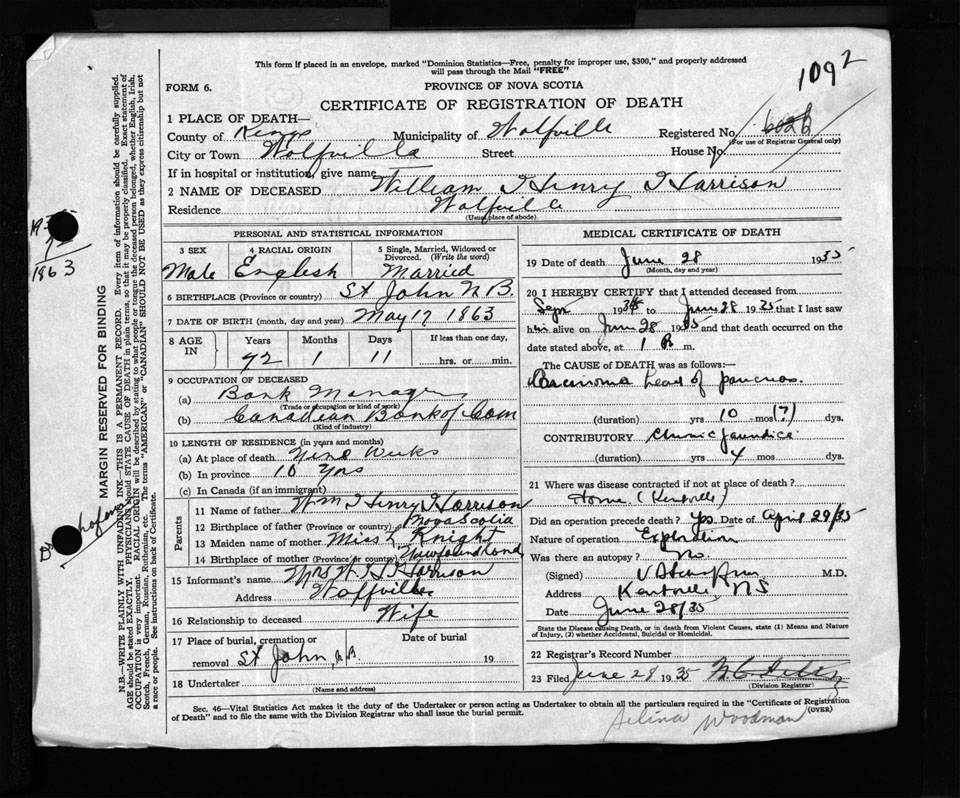 This form if placed in an envelope, marked "Dominion Statistics—Free, penalty for improper use, $300," and properly addressed
will pass through the Mail "FREE"
1092
FORM 6.
PROVINCE OF NOVA SCOTIA
CERTIFICATE OF REGISTRATION OF DEATH
1 PLACE OF DEATH—
County of Kings Municipality of Wolfville Registered No.
(For use of Registrar General only)
City or Town Wolfville Street House No.
If in hospital or institution, give name
2 NAME OF DECEASED William Henry Harrison
Residence Wolfville
(Usual place of abode)
PERSONAL AND STATISTICAL INFORMATION
3 SEX 4 RACIAL ORIGIN 5 Single, Married, Widowed or
Divorced. (Write the word)
Male English Married
6 BIRTHPLACE (Province or country) St John N.B.
7 DATE OF BIRTH (month, day and year) May 17 1863
8 AGE IN Years Months Days If less than one day,
72 1 11 hrs. or min.
9 OCCUPATION OF DECEASED
(a) Bank Manager
(Trade or occupation or kind of work)
(b) Canadian Bank of Com
(Kind of industry)
10 LENGTH OF RESIDENCE (in years and months)
(a) At place of death Nine Weeks
(b) In province 10 Yrs
(c) In Canada (if an immigrant)
Parents
11 Name of father Wm Henry Harrison
12 Birthplace of father (Province or country) Nova Scotia
13 Maiden name of mother Miss Knight
14 Birthplace of mother (Province or country) Newfoundland
15 Informant's name Mrs W H Harrison
Address Wolfville
16 Relationship to deceased Wife
17 Place of burial, cremation or
removal St John, N.B. Date of burial
19
18 Undertaker
(Name and address)
MEDICAL CERTIFICATE OF DEATH
19 Date of death June 28 1935
(Month, day and year)
20 I HEREBY CERTIFY that I attended deceased from
Sept 1934 to June 28 1935 that I last saw
him alive on June 28 1935 and that death occurred on the
date stated above, at 1 P. m.
The CAUSE OF DEATH was as follows:—
Carcinoma head of pancreas.
(duration) yrs 10 mos (?) dys.
CONTRIBUTORY Chronic jaundice
(duration) yrs 4 mos dys.
21 Where was disease contracted if not at place of death?
Home (Kentville)
Did an operation precede death? Yes. Date of April 29/35
Nature of operation Exploration
Was there an autopsy? No
(Signed) M.D.
Address Kentville NS
Date June 28/35
State the Disease causing Death, or in death from Violent Causes, state (1) Means and Nature
of Injury, (2) whether Accidental, Suicidal or Homicidal.
22 Registrar's Record Number
23 Filed June 29 1935
(Division Registrar)
Sec. 46—Vital Statistics Act makes it the duty of the Undertaker or person acting as Undertaker to obtain all the particulars required in the "Certificate of Registration
of Death" and to file the same with the Division Registrar who shall issue the burial permit.
(OVER)
Selina Woodman
MARGIN RESERVED FOR BINDING
N.B.—WRITE PLAINLY WITH UNFADING INK—THIS IS A PERMANENT RECORD. Every item of information should be carefully supplied.
AGE should be stated EXACTLY. PHYSICIANS should STATE CAUSE OF DEATH in plain terms, so that it may be properly classified. Exact statement of
OCCUPATION is very important. RACIAL ORIGIN will be described by stating to what people or tongue the deceased person belonged, whether English, Irish,
Scotch, French, German, Russian, Ruthenian, etc. The terms "AMERICAN" or "CANADIAN" SHOULD NOT BE USED as they express citizenship but not
a race or people. See instructions on back of Certificate.
1863